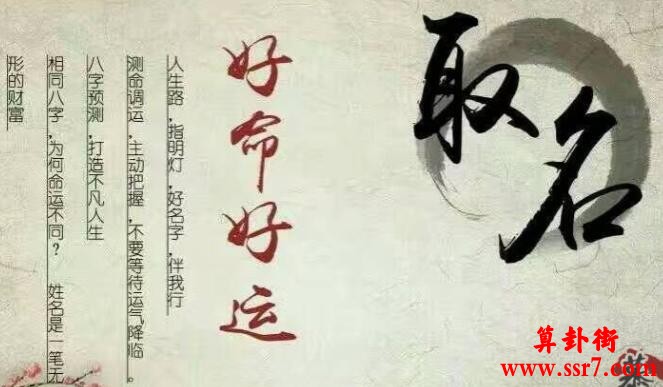 取名
好命好运
人生路,指明灯,好名字,伴我行
测命调运,主动把握,不要等待运气降临。
八字预测,打造不凡人生
相同八字,为何命运不同? 姓名是一笔无
形的财富
算卦街
www.ssr7.com